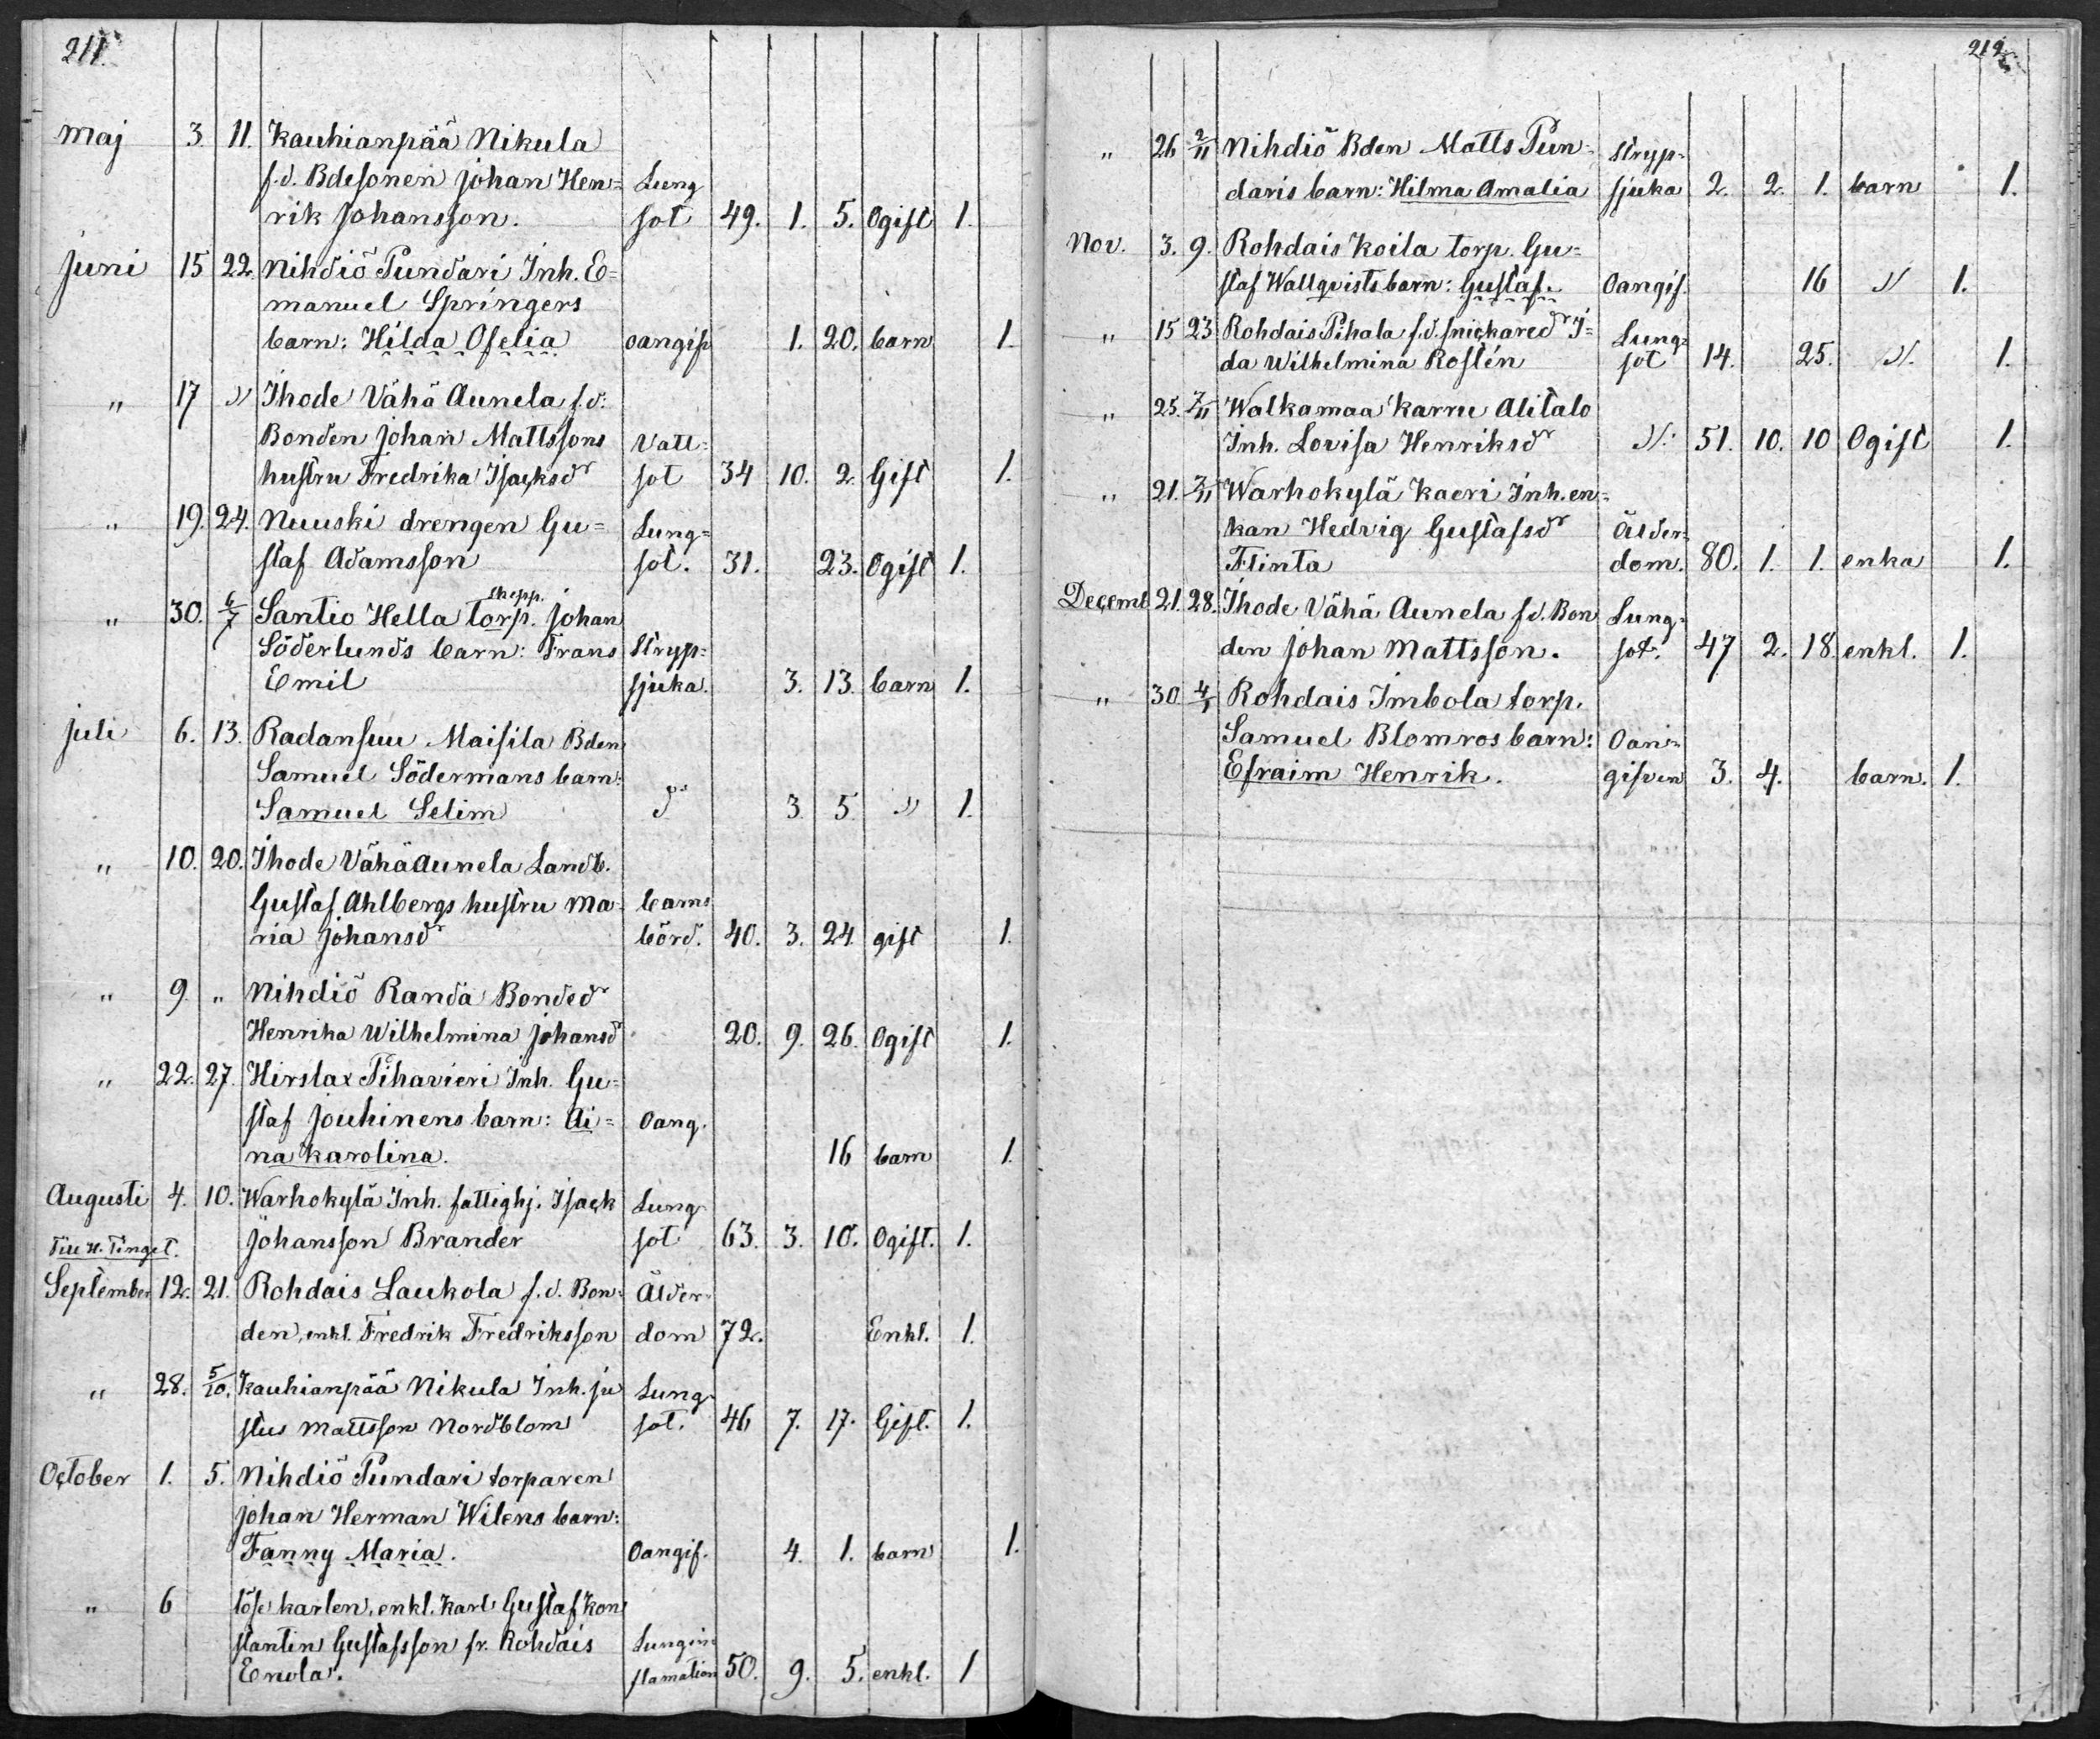 211.
Maj 3 11. Kauhianpää Nikula
f.d. Bdesonen Johan Hen= Lung
rik Johansson. sot 49. 1. 5. Ogift 1.
Juni 15 22. Nihdiö Pundari Inh. E=
manuel Springers
barn: Hilda Ofelia oangif 1. 20. barn 1.
" 17 " Ihode Vähä Aunela f.d.
Bonden Johan Mattssons Vatt=
hustru Fredrika Isacksdr sot 34 10. 2. Gift 1.
" 19. 24. Nuuski drengen Gu= Lung=
staf Adamsson sot. 31. 23. Ogift 1.
skepp.
" 30. 6/7 Santio Hella torp. Johan
Söderlunds barn: Frans Stryp=
Emil sjuka. 3. 13. barn 1.
Juli 6. 13. Radansuu Maisila Bden
Samuel Södermans barn:
Samuel Selim do 3. 5. " 1.
" 10. 20. Ihode Vähä Aunela Landb.
Gustaf Ahlbergs hustru Ma- barns
ria Johansdr börd. 40. 3. 24. gift 1.
" 9. " Nihdiö Randa Bondedr
Henrika Wilhelmina Johansdr 20. 9. 26. Ogift 1.
" 22. 27. Hirslax Pihavieri Inh. Gu=
staf Jouhinens barn: Ai= Oang.
na Karolina. 16 barn 1.
Augusti 4. 10. Warhokylä Inh. fattighj. Isack Lung
Till H. Tinget. Johansson Brander sot 63. 3. 10. Ogift. 1.
September 12. 21. Rohdais Laukola f.d. Bon= Ålder
den, enkl. Fredrik Fredriksson dom 72. Enkl. 1.
" 28. 5/10. Kauhianpää Nikula Inh. Ju Lung
stus Mattsson Nordblom sot. 46 7. 17. Gift. 1.
October 1. 5. Nihdiö Pundari torparen
Johan Herman Wilens barn:
Fanny Maria. Oangif. 4. 1. barn 1.
" 6 löse karlen, enkl. Karl Gustaf Kon
stantin Gustafsson fr. Rohdais Lungin
Enola. flamation 50. 9. 5. enkl. 1
212
" 26 2/11 Nihdiö Bden Matts Pun= Stryp=
daris barn: Hilma Amalia sjuka 2. 2. 1. barn 1.
Nov. 3. 9. Rohdais Koila torp. Gu=
staf Wallqvists barn: Gustaf. Oangif. 16 " 1.
" 15 23 Rohdais Pihala f.d. snickaredr I= Lung=
da Wilhelmina Roslén sot 14. 25. ". 1.
" 25. 7/11 Walkamaa Karru Alitalo
Inh. Lovisa Henriksdr ". 51. 10. 10 Ogift 1.
" 21. 7/11 Warhokylä Kaeri Inh. en=
kan Hedvig Gustafsdr Ålder=
Flinta dom. 80. 1. 1. enka 1.
Decemb 21. 28. Ihode Vähä Aunela f.d. Bon Lung=
den Johan Mattsson. sot. 47 2. 18. enkl. 1.
" 30 4/1 Rohdais Imbola torp.
Samuel Blomros barn: Oan=
Efraim Henrik. gifven 3. 4. barn. 1.